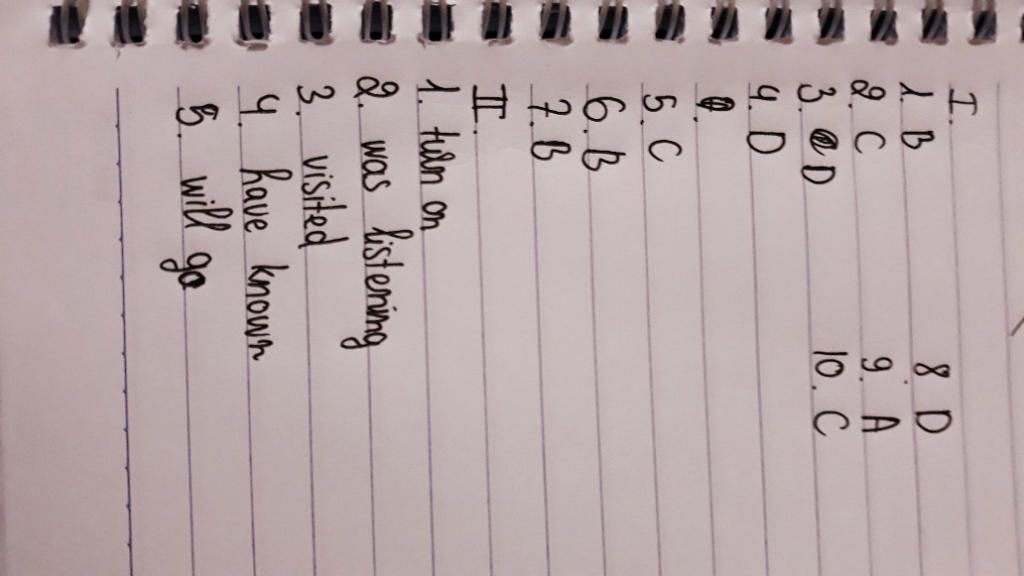 I.
1. B
2. C
3. D
4. D
5. C
6. B
7. B
8 D
9. A
10. C
II.
1. turn on
2. was listening
3. visited
4. have known
5. will go